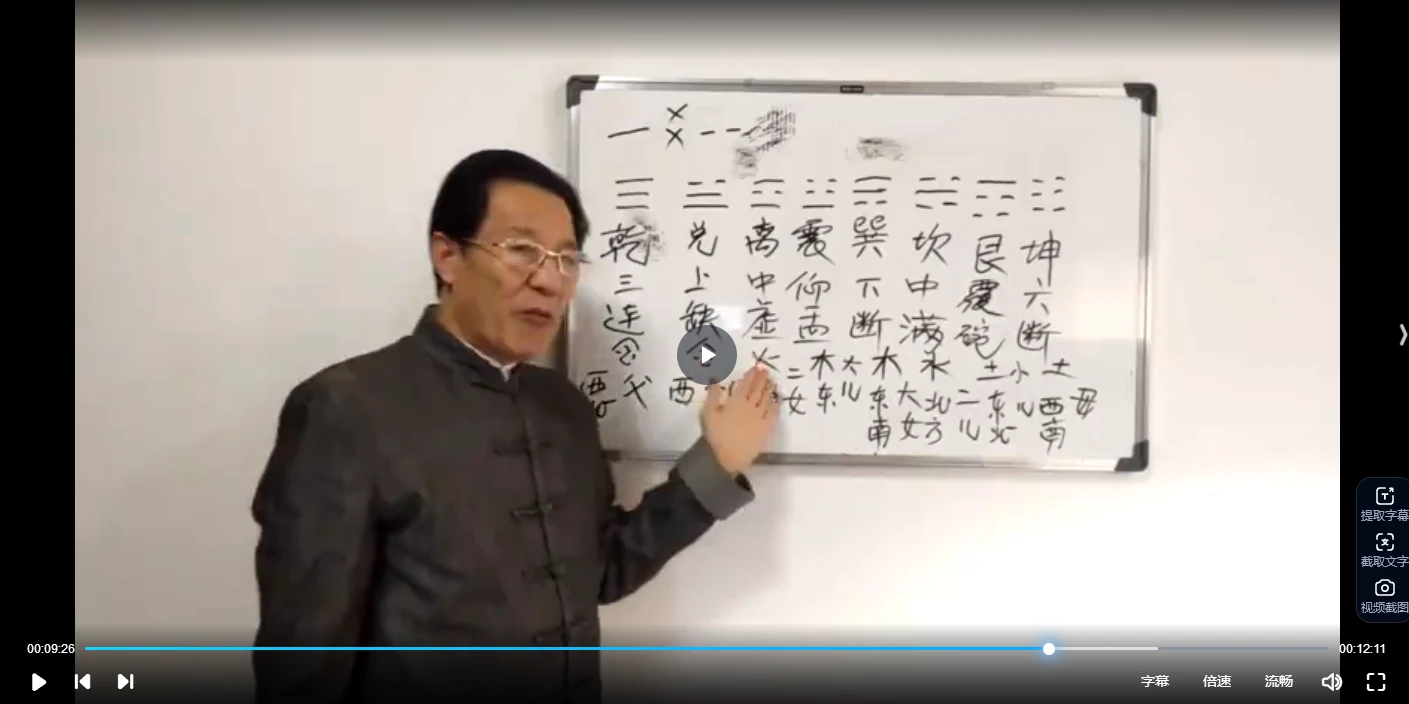 乾 兑 离 震 巽 坎 艮 坤
三 上 中 仰 下 中 覆 六
连 缺 虚 盂 断 满 碗 断
金 金 火 木 木 水 土 土
父 西 二女 东 大儿 东南 大女 北方 二儿 东北 小儿 西南 母
提取字幕
截取文字
视频截图
00:09:26
00:12:11
字幕 倍速 流畅